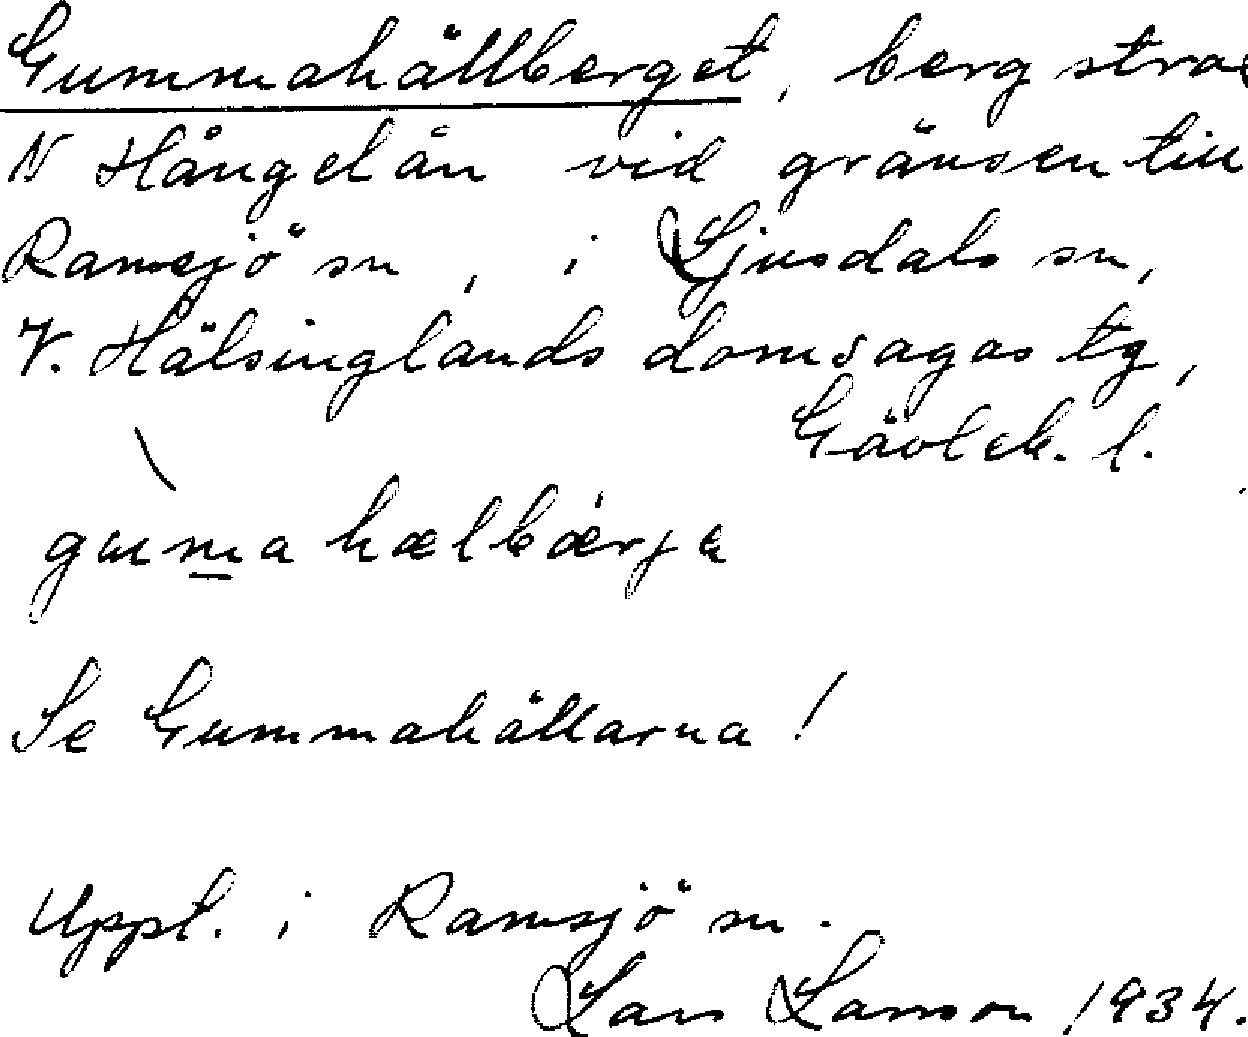 Gummahällberget, berg strax
N Hångelån vid gränsen till
Ramsjö sn, i Ljusdals sn,
V. Hälsinglands domsagas tg,
Gävleb. l.
gumahælbærja
Se Gummahällarna!
Uppt. i Ramsjö sn.
Lars Larsson 1934.